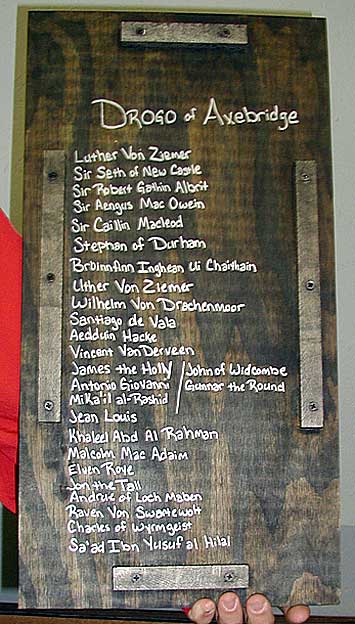 Drogo of Axebridge
Luther Von Ziemer
Sir Seth of New Castle
Sir Robert Gathin Albrit
Sir Aengus Mac Owein
Sir Caillin Macleod
Stephan of Durham
Broinnfinn Inghean Ui Chaithain
Uther Von Ziemer
Wilhelm Von Drachenmoor
Santiago de Vala
Aedduin Hacke
Vincent VanDerveen
James the Holly / John of Widcombe
Antonio Giovanni / Gunnar the Round
Mika'il al-Rashid
Jean Louis
Khaleel Abd Al Rahman
Malcolm Mac Adaim
Elven Rove
Jon the Tall
Andrue of Loch Maben
Raven Von Swartewolt
Charles of Wyrmgeist
Sa'ad Ibn Yusuf al Hilal